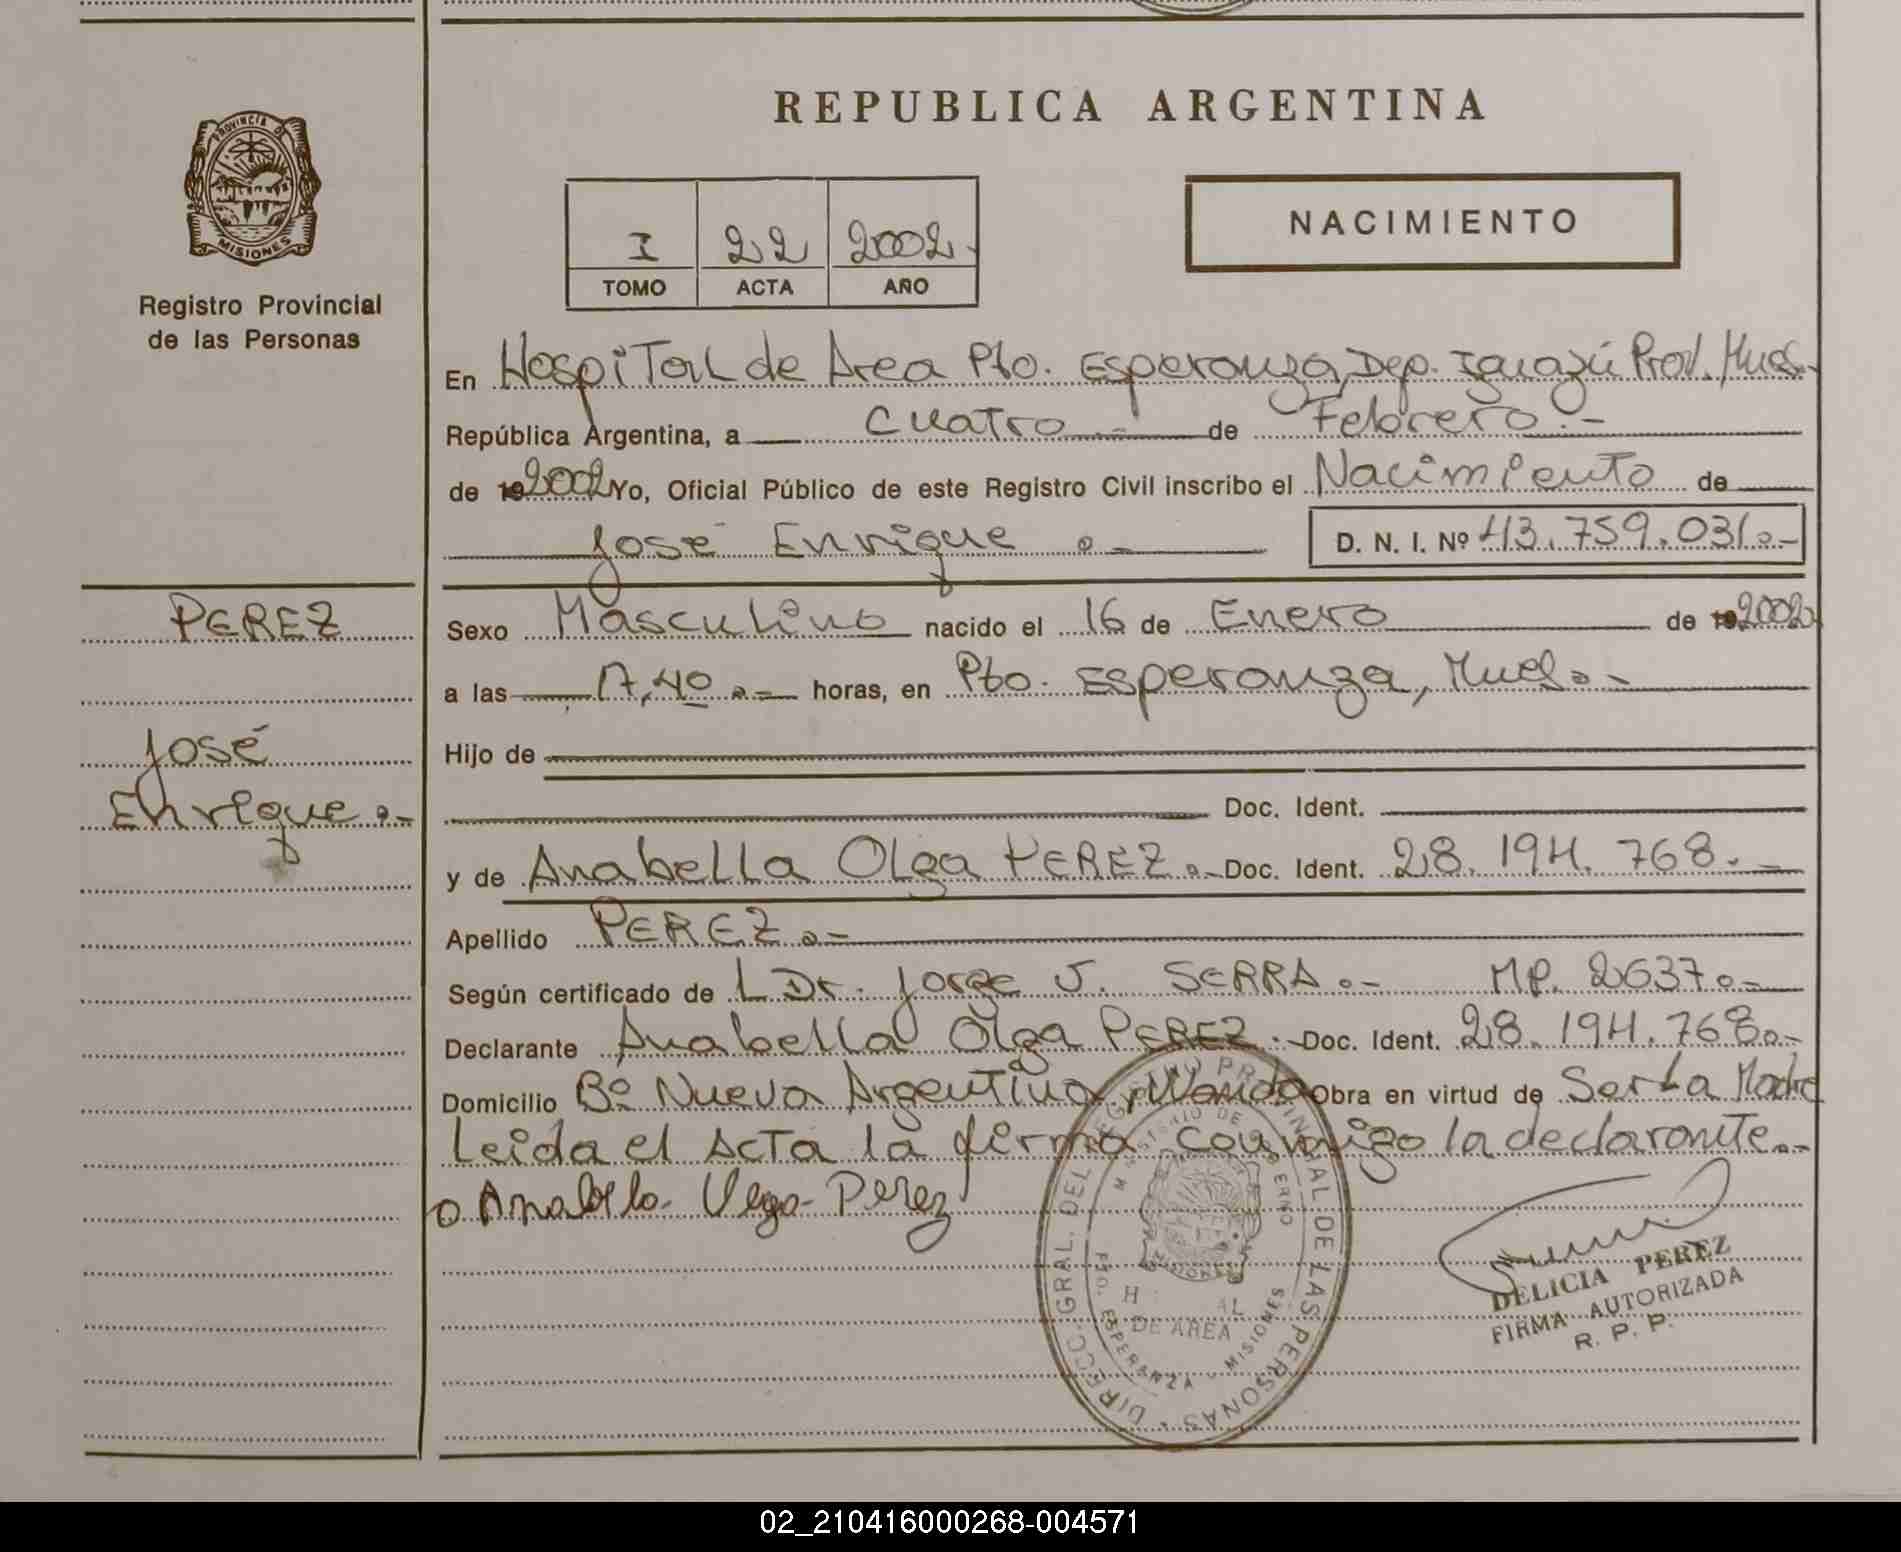 REPUBLICA ARGENTINA
PROVINCIA DE
MISIONES
Registro Provincial
de las Personas
I 22 2002.
TOMO ACTA AÑO
NACIMIENTO
En Hospital de Area Pto. Esperanza, Dep. Iguazú Prov. Mnes.-
República Argentina, a cuatro.- de Febrero.-
de 192002 Yo, Oficial Público de este Registro Civil inscribo el Nacimiento de
José Enrique.- D. N. I. Nº 43.759.031.-
PEREZ
José
Enrique.-
Sexo Masculino nacido el 16 de Enero de 192002
a las 17,40.- horas, en Pto. Esperanza, Mnes.-
Hijo de
Doc. Ident.
y de Anabella Olga PEREZ.- Doc. Ident. 28.194.768.-
Apellido PEREZ.-
Según certificado de L Dr. Jorge J. SERRA.- MP. 2637.-
Declarante Anabella Olga PEREZ.- Doc. Ident. 28.194.768.-
Domicilio Bº Nueva Argentina, Wanda Obra en virtud de Ser La Madre
Leida el Acta la firma conmigo la declarante.-
Perez
DIRECC. GRAL. DEL REGISTRO PROVINCIAL DE LAS PERSONAS
MINISTERIO DE GOBIERNO
MISIONES
H AL
DE AREA
PTO. ESPERANZA - MISIONES
DELICIA PEREZ
FIRMA AUTORIZADA
R. P. P.
02_210416000268-004571